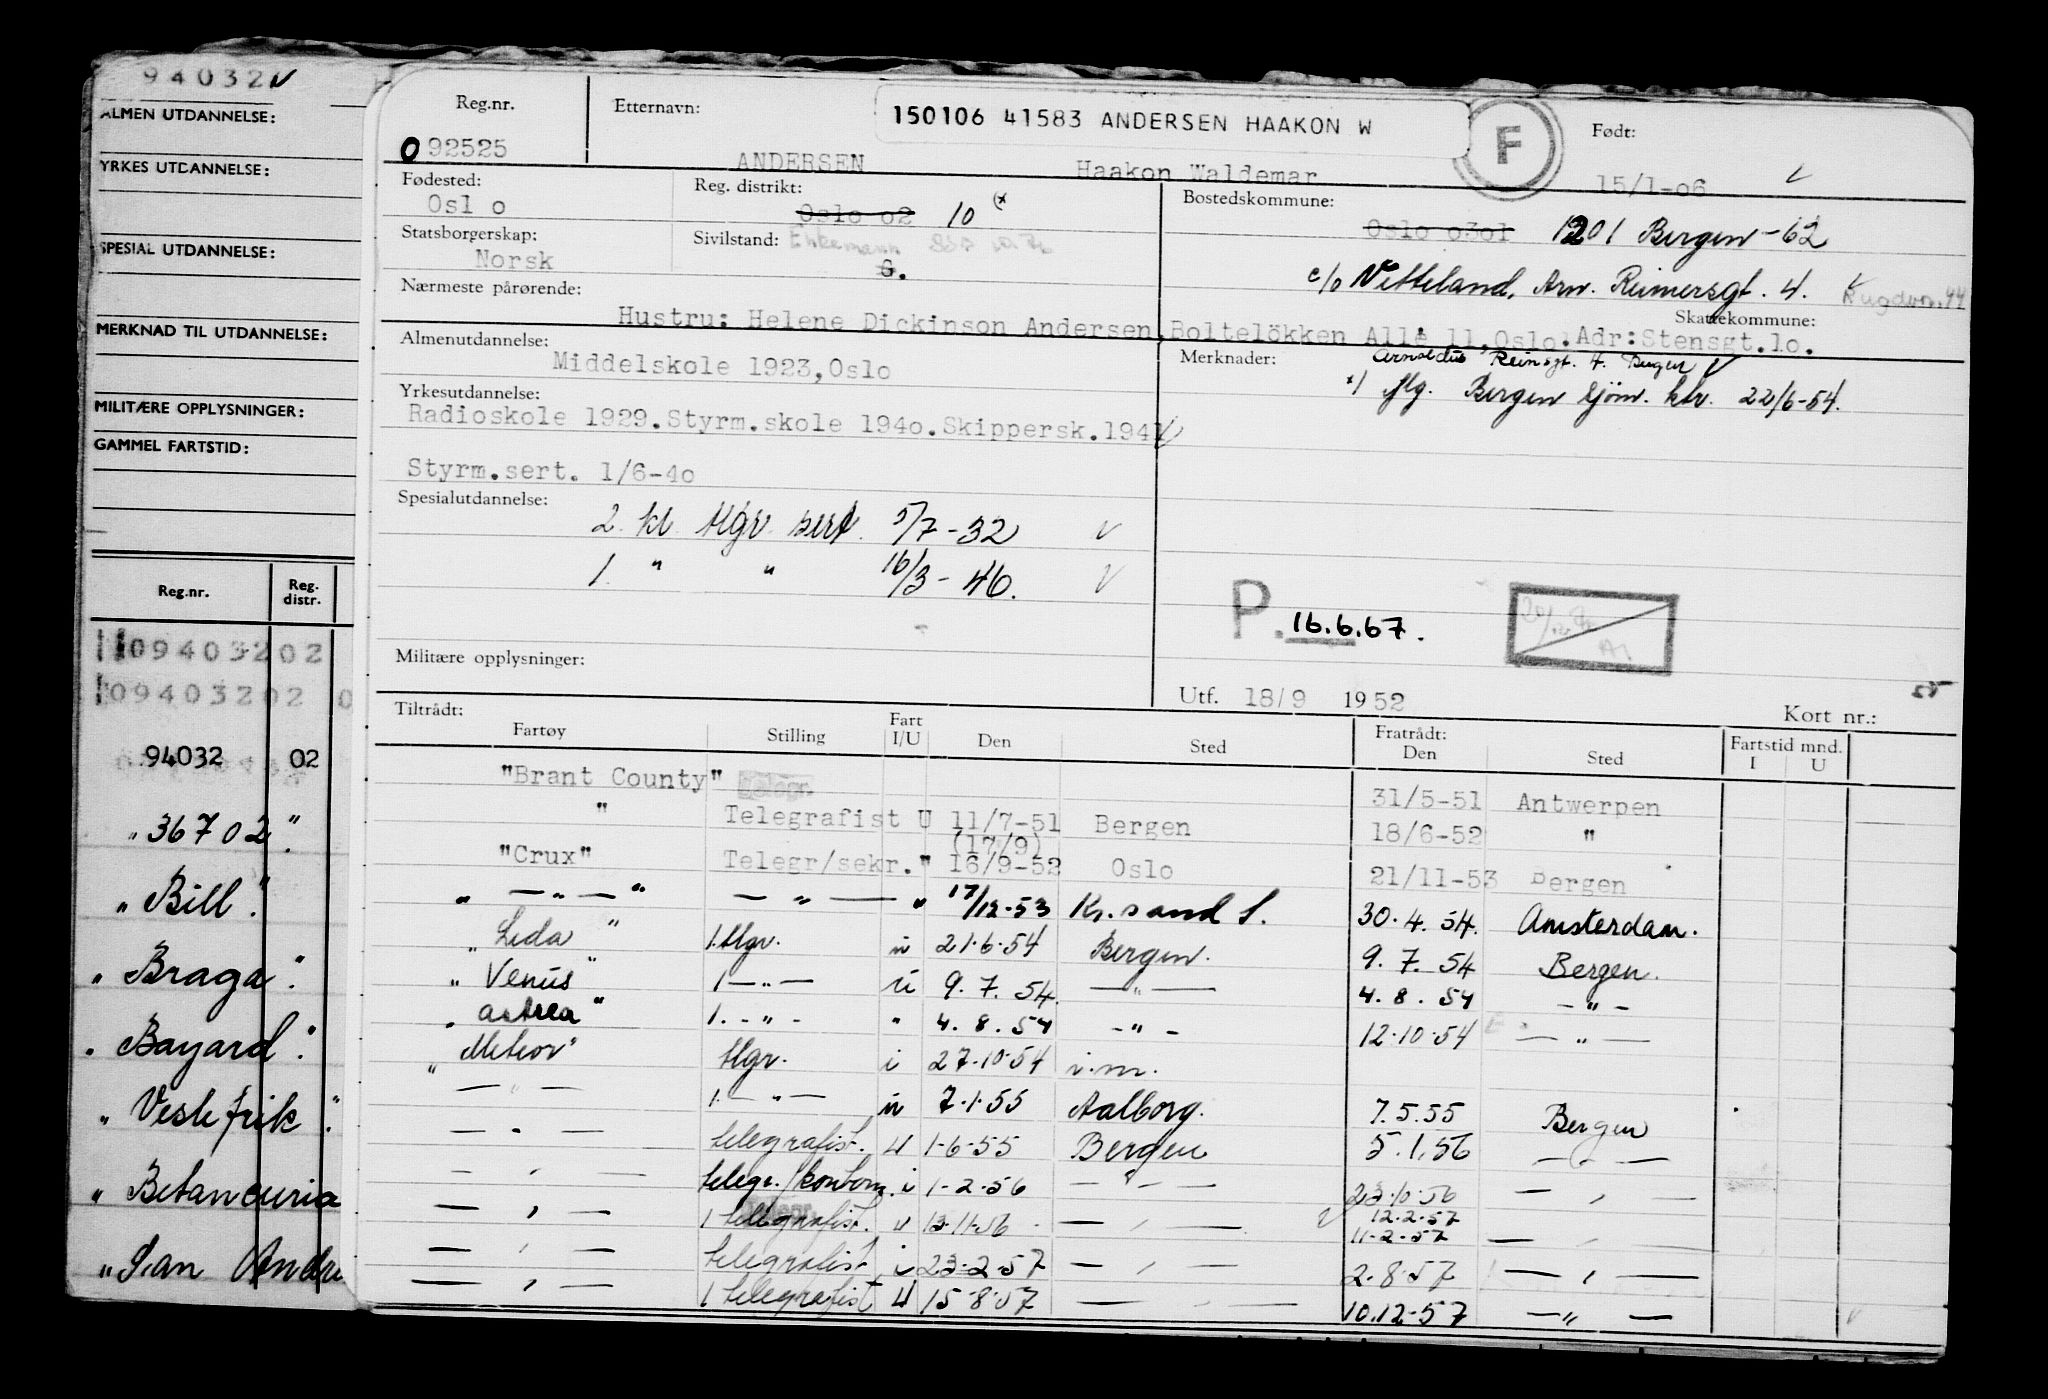 94032
ALMEN UTDANNELSE:
YRKES UTDANNELSE:
SPESIAL UTDANNELSE:
MERKNAD TIL UTDANNELSE:
MILITÆRE OPPLYSNINGER:
GAMMEL FARTSTID:
Reg.nr. Reg. distr.
09403202
09403202 0
94032 02
"36702"
"Bill"
"Braga"
"Bayard"
"Veslefrik"
"Betancuria
"San Andre
Reg.nr. Etternavn: 150106 41583 ANDERSEN HAAKON W F Født:
092525 ANDERSEN Haakon Waldemar 15/1-06
Fødested: Reg. distrikt: Bostedskommune:
Oslo Oslo o2 10 (* Oslo o3o1 1201 Bergen -62
Statsborgerskap: Sivilstand: Enkemann
Norsk G. c/o Vetteland, Arn. Reimersgt. 4.
Nærmeste pårørende: Skattekommune:
Hustru: Helene Dickinson Andersen, Boltelökken Allé 11, Oslo. Adr: Stensgt.1o.
Almenutdannelse: Merknader: Arnoldus Reimsgt. 4. Bergen
Middelskole 1923, Oslo *) flg. Bergen sjöm. ktr. 22/6-54.
Yrkesutdannelse:
Radioskole 1929. Styrm.skole 194o. Skippersk. 1941
Styrm.sert. 1/6-4o
Spesialutdannelse:
2. kl. tlgr. sert. 5/7-32
1. " " 16/3-46.
P. 16.6.67.
Militære opplysninger:
Utf. 18/9 1952
Kort nr.:
Tiltrådt: Fart Fratrådt: Fartstid mnd.
Fartøy Stilling I/U Den Sted Den Sted I U
"Brant County" Telegr. 31/5-51 Antwerpen
" Telegrafist U 11/7-51 Bergen 18/6-52 "
(17/9)
"Crux" Telegr/sekr. " 16/9-52 Oslo 21/11-53 Bergen
" — " — " — " — " 17/12-53 Kr.sand S. 30.4.54. Amsterdam.
"Leda" 1.tlgr. u 21.6.54 Bergen. 9.7.54 Bergen.
"Venus" 1 — " — u 9.7.54. — " — 4.8.54 — " —
"Astrea" 1. - " - " 4.8.54 — " — 12.10.54 — " —
"Meteor" tlgr. i 27.10.54 i.m.
— " — 1. — " — u 7.1.55 Aalborg. 7.5.55 Bergen
— " — telegrafist. U 1.6.55 Bergen 5.1.56 — " —
— " — telegr./kontorm. i 1.2.56 — " — 23.10.56 — " —
— " — 1 telegrafist. u 13.11.56 — " — 12.2.57
11.2.57 — " —
— " — telegrafist i 23.2.57 — " — 2.8.57 — " —
— " — 1 telegrafist U 15.8.57 — " — 10.12.57 — " —